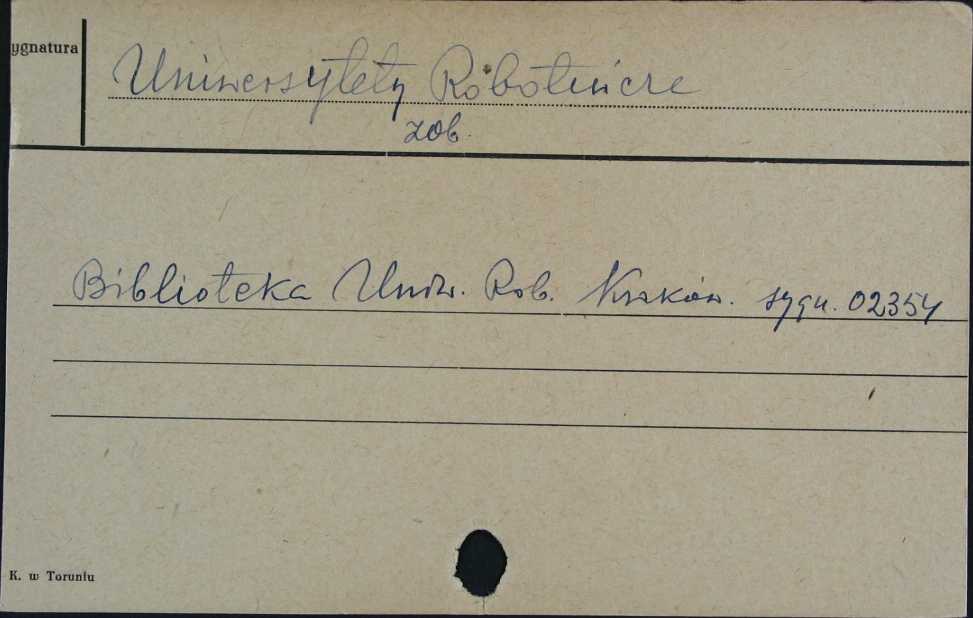 ygnatura
Uniwersytety Robotnicze
zob.
Biblioteka Uniw. Rob. Kraków. sygn. 02354
K. w Toruniu